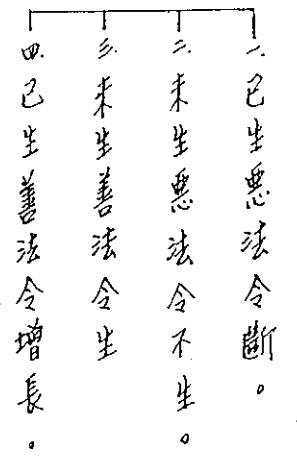 一、已生惡法令斷。
二、未生惡法令不生。
三、未生善法令生
四、已生善法令增長。